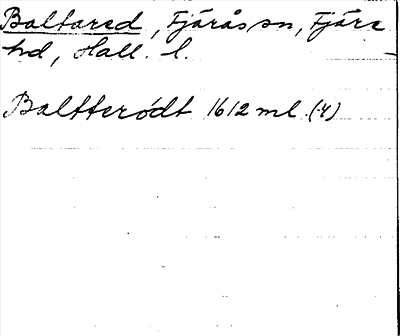 Baltared, Fjärås sn, Fjäre
hd, Hall. l.
Baltterödt 1612 ml (4)